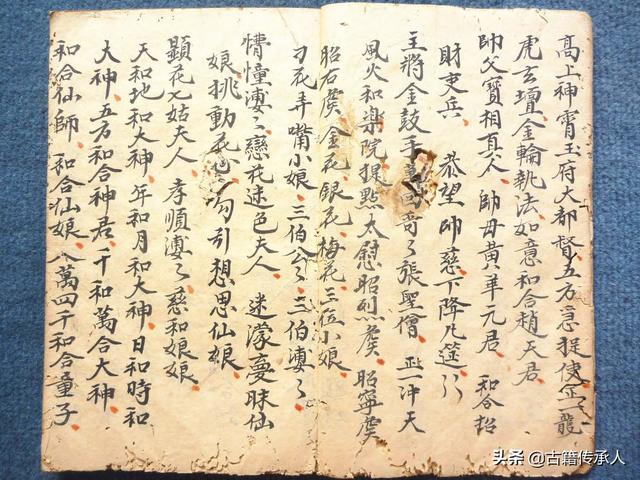 高上神霄玉府大都督五方急捉使正一龍
虎玄壇金輪執法如意和合趙天君
師父寶相真人 師母黃華元君 和合招
財吏兵 恭望師慈下降凡筵
主將金鼓手萬回哥々張聖僧 正一冲天
風火和樂院提點太慰昭烈虞 昭寧虞
昭右虞金花銀花梅花三位小娘
刁花弄嘴小娘三伯公々三伯婆々
懵憧婆々戀花迷色夫人 迷濛憂昧仙
娘挑動花心勾引想思仙娘
顕花七姑夫人 孝順婆々慈和娘娘
天和地和大神年和月和大神日和時和
大神五方和合神君千和萬合大神
和合仙師和合仙娘八萬四千和合童子
头条 @古籍传承人